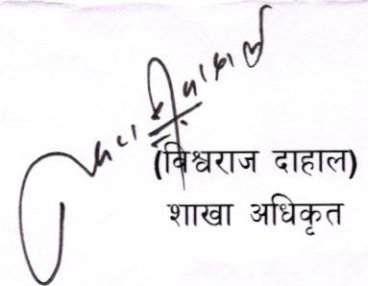 (विश्वराज दाहाल)
शाखा अधिकृत